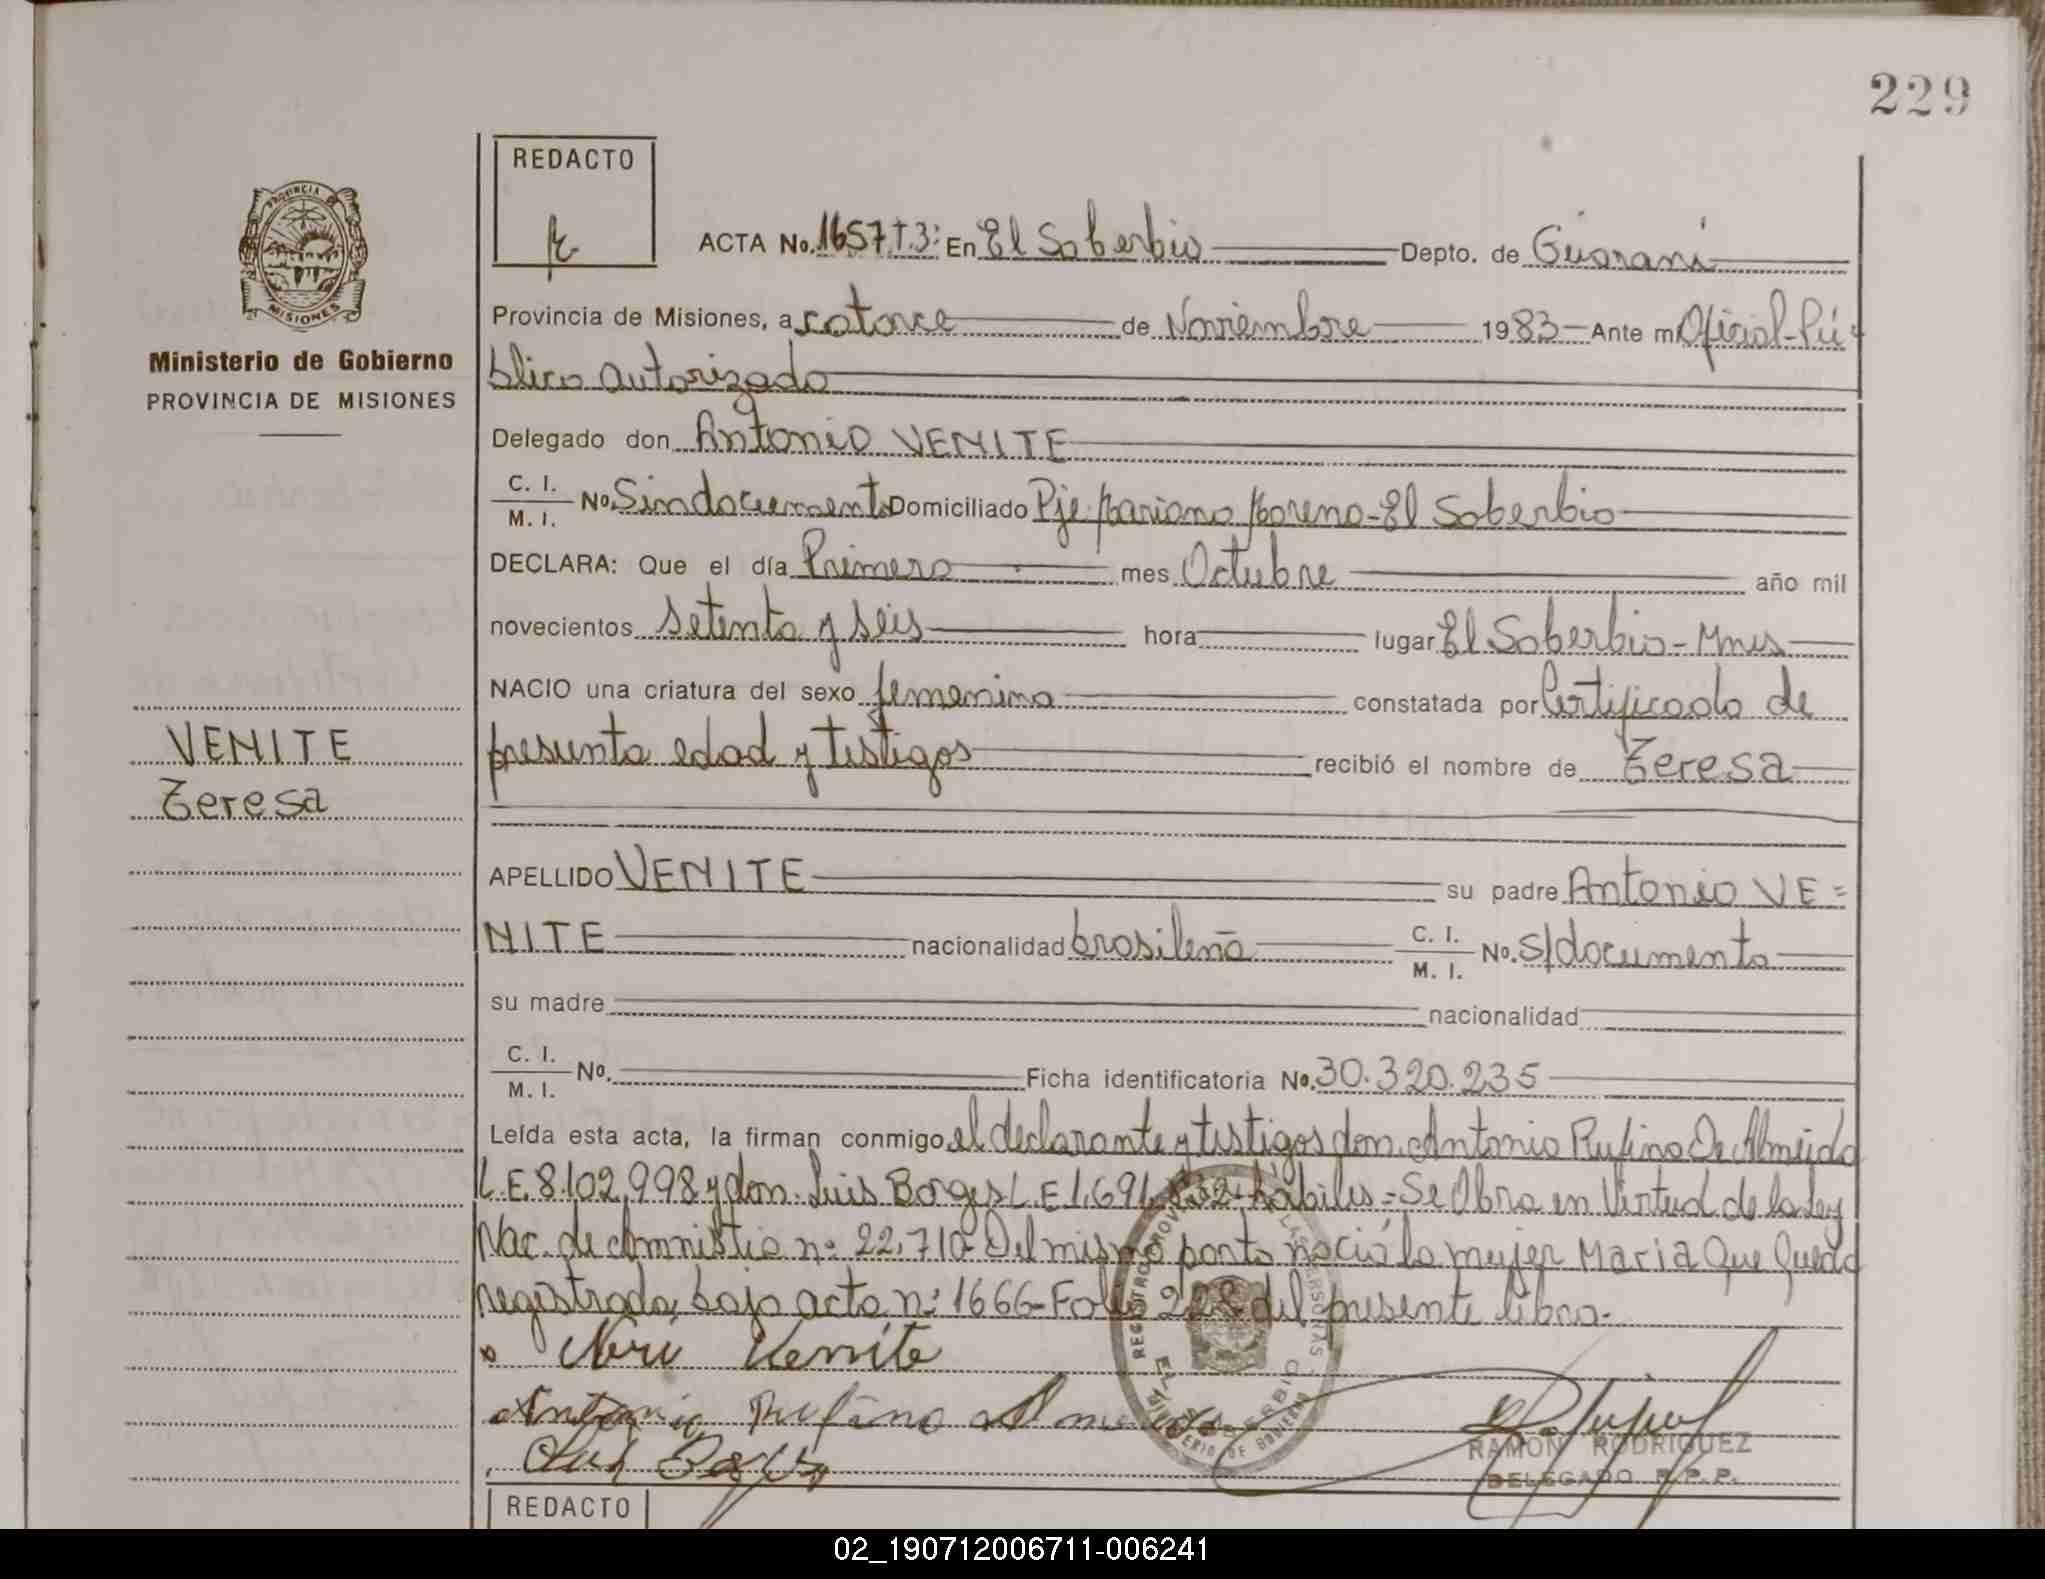 229
REDACTO
PROVINCIA
MISIONES
Ministerio de Gobierno
PROVINCIA DE MISIONES
ACTA No. 1657 T.3: En El Soberbio Depto. de Guarani
Provincia de Misiones, a catorce de Noviembre 1983 Ante mi Oficial Pú-
blico autorizado
Delegado don Antonio VENITE
C. I.
M. I. No. Sin documento Domiciliado Pje Mariano Moreno-El Soberbio
DECLARA: Que el día Primero mes Octubre año mil
novecientos setenta y seis hora lugar El Soberbio-Mnes
NACIO una criatura del sexo femenino constatada por Certificado de
presunta edad y testigos recibió el nombre de Teresa
VENITE
Teresa
APELLIDO VENITE su padre Antonio VE=
NITE nacionalidad brasileña C. I. M. I. No. s/documento
su madre nacionalidad
C. I.
M. I. No. Ficha identificatoria No. 30.320.235
Leída esta acta, la firman conmigo el declarante y testigos don Antonio Rufino De Almeida
L.E. 8.102.998 y don Luis Borges L.E 1.691. hábiles=Se Obra en Virtud de la ley
Nac. de Amnistia n: 22.710 Del mismo parto nació la mujer Maria Que Queda
registrada bajo acta n: 1666-Folio 228 del presente libro.-
Venite
Antonio Rufino Almeida
RAMON RODRIGUEZ
DELEGADO R.P.P.
REDACTO
02_190712006711-006241